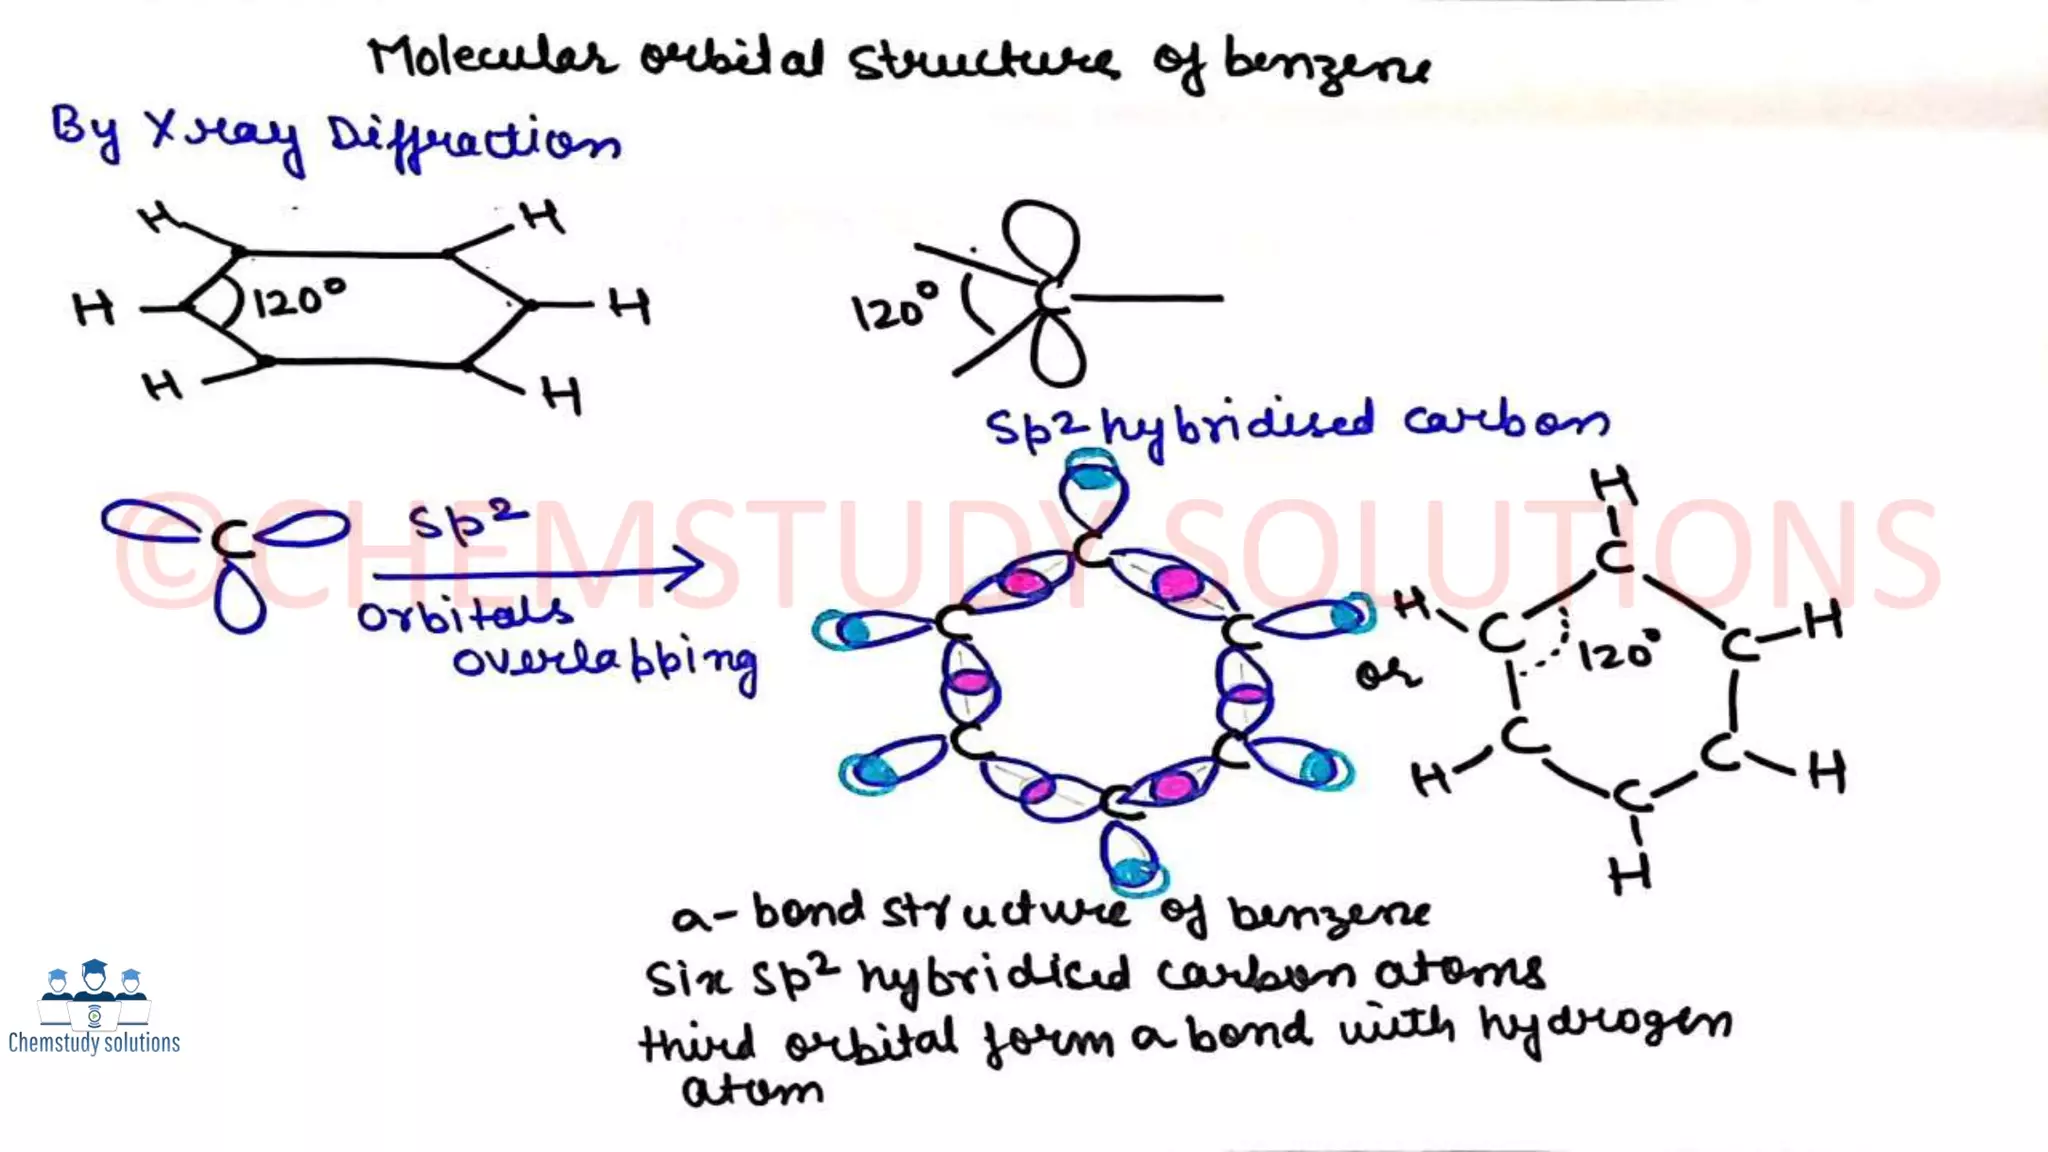 Molecular orbital structure of benzene
By X ray Diffraction
H H
H 120° H
H H
120° C
Sp2 hybridised carbon
C
Sp2
orbitals
overlapping
C
C C
C C
C
or
H
C
H C C H
120°
H C C H
C
H
a-bond structure of benzene
Six sp2 hybridised carbon atoms
third orbital form a bond with hydrogen
atom
©CHEMSTUDY SOLUTIONS
Chemstudy solutions